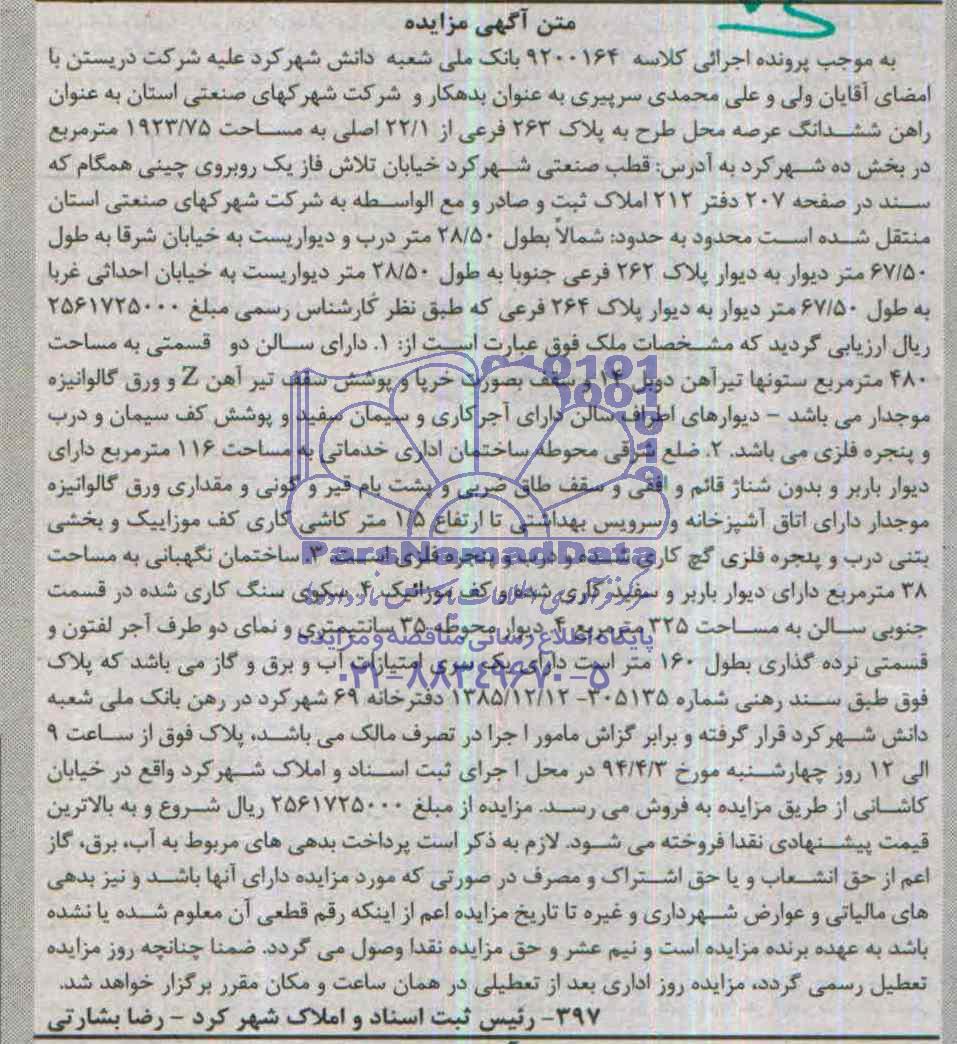 متن آگهی مزایده
به موجب پرونده اجرائی کلاسه ۹۲۰۰۱۶۴ بانک ملی شعبه دانش شهرکرد علیه شرکت دریستن با
امضای آقایان ولی و علی محمدی سرپیری به عنوان بدهکار و شرکت شهرکهای صنعتی استان به عنوان
راهن ششدانگ عرصه محل طرح به پلاک ۲۶۳ فرعی از ۲۲/۱ اصلی به مساحت ۱۹۲۳/۷۵ مترمربع
در بخش ده شهرکرد به آدرس: قطب صنعتی شهرکرد خیابان تلاش فاز یک روبروی چینی همگام که
سند در صفحه ۲۰۷ دفتر ۲۱۲ املاک ثبت و صادر و مع الواسطه به شرکت شهرکهای صنعتی استان
منتقل شده است محدود به حدود: شمالاً بطول ۲۸/۵۰ متر درب و دیواریست به خیابان شرقا به طول
۶۷/۵۰ متر دیوار به دیوار پلاک ۲۶۲ فرعی جنوبا به طول ۲۸/۵۰ متر دیواریست به خیابان احداثی غربا
به طول ۶۷/۵۰ متر دیوار به دیوار پلاک ۲۶۴ فرعی که طبق نظر کارشناس رسمی مبلغ ۲۵۶۱۷۲۵۰۰۰
ریال ارزیابی گردید که مشخصات ملک فوق عبارت است از: ۱. دارای سالن دو قسمتی به مساحت
۴۸۰ مترمربع ستونها تیرآهن دوبل ۱۴ و سقف بصورت خرپا و پوشش سقف تیر آهن Z و ورق گالوانیزه
موجدار می باشد - دیوارهای اطراف سالن دارای آجرکاری و سیمان سفید و پوشش کف سیمان و درب
و پنجره فلزی می باشد. ۲. ضلع شرقی محوطه ساختمان اداری خدماتی به مساحت ۱۱۶ مترمربع دارای
دیوار باربر و بدون شناژ قائم و افقی و سقف طاق ضربی و پشت بام قیر و گونی و مقداری ورق گالوانیزه
موجدار دارای اتاق آشپزخانه و سرویس بهداشتی تا ارتفاع ۱/۵ متر کاشی کاری کف موزاییک و بخشی
بتنی درب و پنجره فلزی گچ کاری شده و درب و پنجره فلزی است. ۳. ساختمان نگهبانی به مساحت
۳۸ مترمربع دارای دیوار باربر و سفید کاری شده و کف موزائیک ۴. سکوی سنگ کاری شده در قسمت
جنوبی سالن به مساحت ۳۲۵ مترمربع ۴. دیوار محوطه ۳۵ سانتیمتری و نمای دو طرف آجر لفتون و
قسمتی نرده گذاری بطول ۱۶۰ متر است دارای یک سری امتیازات آب و برق و گاز می باشد که پلاک
فوق طبق سند رهنی شماره ۳۰۵۱۳۵- ۱۳۸۵/۱۲/۱۲ دفترخانه ۶۹ شهرکرد در رهن بانک ملی شعبه
دانش شهرکرد قرار گرفته و برابر گزاش مامور ا جرا در تصرف مالک می باشد، پلاک فوق از ساعت ۹
الی ۱۲ روز چهارشنبه مورخ ۹۴/۴/۳ در محل ا جرای ثبت اسناد و املاک شهرکرد واقع در خیابان
کاشانی از طریق مزایده به فروش می رسد. مزایده از مبلغ ۲۵۶۱۷۲۵۰۰۰ ریال شروع و به بالاترین
قیمت پیشنهادی نقدا فروخته می شود. لازم به ذکر است پرداخت بدهی های مربوط به آب، برق، گاز
اعم از حق انشعاب و یا حق اشتراک و مصرف در صورتی که مورد مزایده دارای آنها باشد و نیز بدهی
های مالیاتی و عوارض شهرداری و غیره تا تاریخ مزایده اعم از اینکه رقم قطعی آن معلوم شده یا نشده
باشد به عهده برنده مزایده است و نیم عشر و حق مزایده نقدا وصول می گردد. ضمنا چنانچه روز مزایده
تعطیل رسمی گردد، مزایده روز اداری بعد از تعطیلی در همان ساعت و مکان مقرر برگزار خواهد شد.
۳۹۷- رئیس ثبت اسناد و املاک شهر کرد - رضا بشارتی
ParsNamadData
پایگاه اطلاع رسانی مناقصه و مزایده
۰۲۱-۸۸۳۴۹۶۷۰-۵